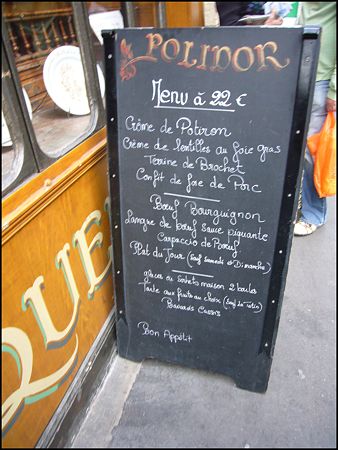 POLIDOR
Menu à 22 €
Crème de Potiron
Crème de lentilles au foie gras
Terrine de Brochet
Confit de foie de Porc
Bœuf Bourguignon
Langue de bœuf sauce piquante
Carpaccio de Bœuf
Plat du Jour (sauf samedi et Dimanche)
glaces ou sorbets maison 2 boules
Tarte aux fruits au choix (sauf la Tatin)
Cassis
Bon Appétit
QUE